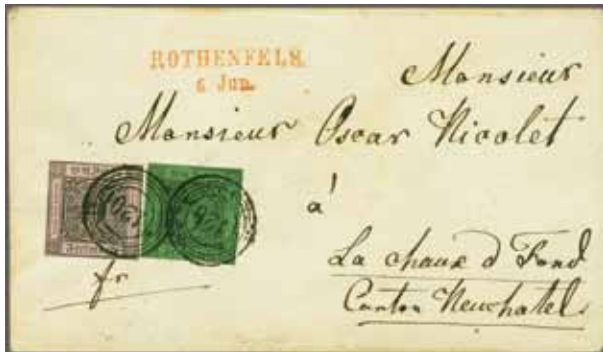 ROTHENFELS.
6 Jun.
Monsieur
Monsieur Oscar Nicolet
à
La chaux d Fond
Canton Neuchatel
fr